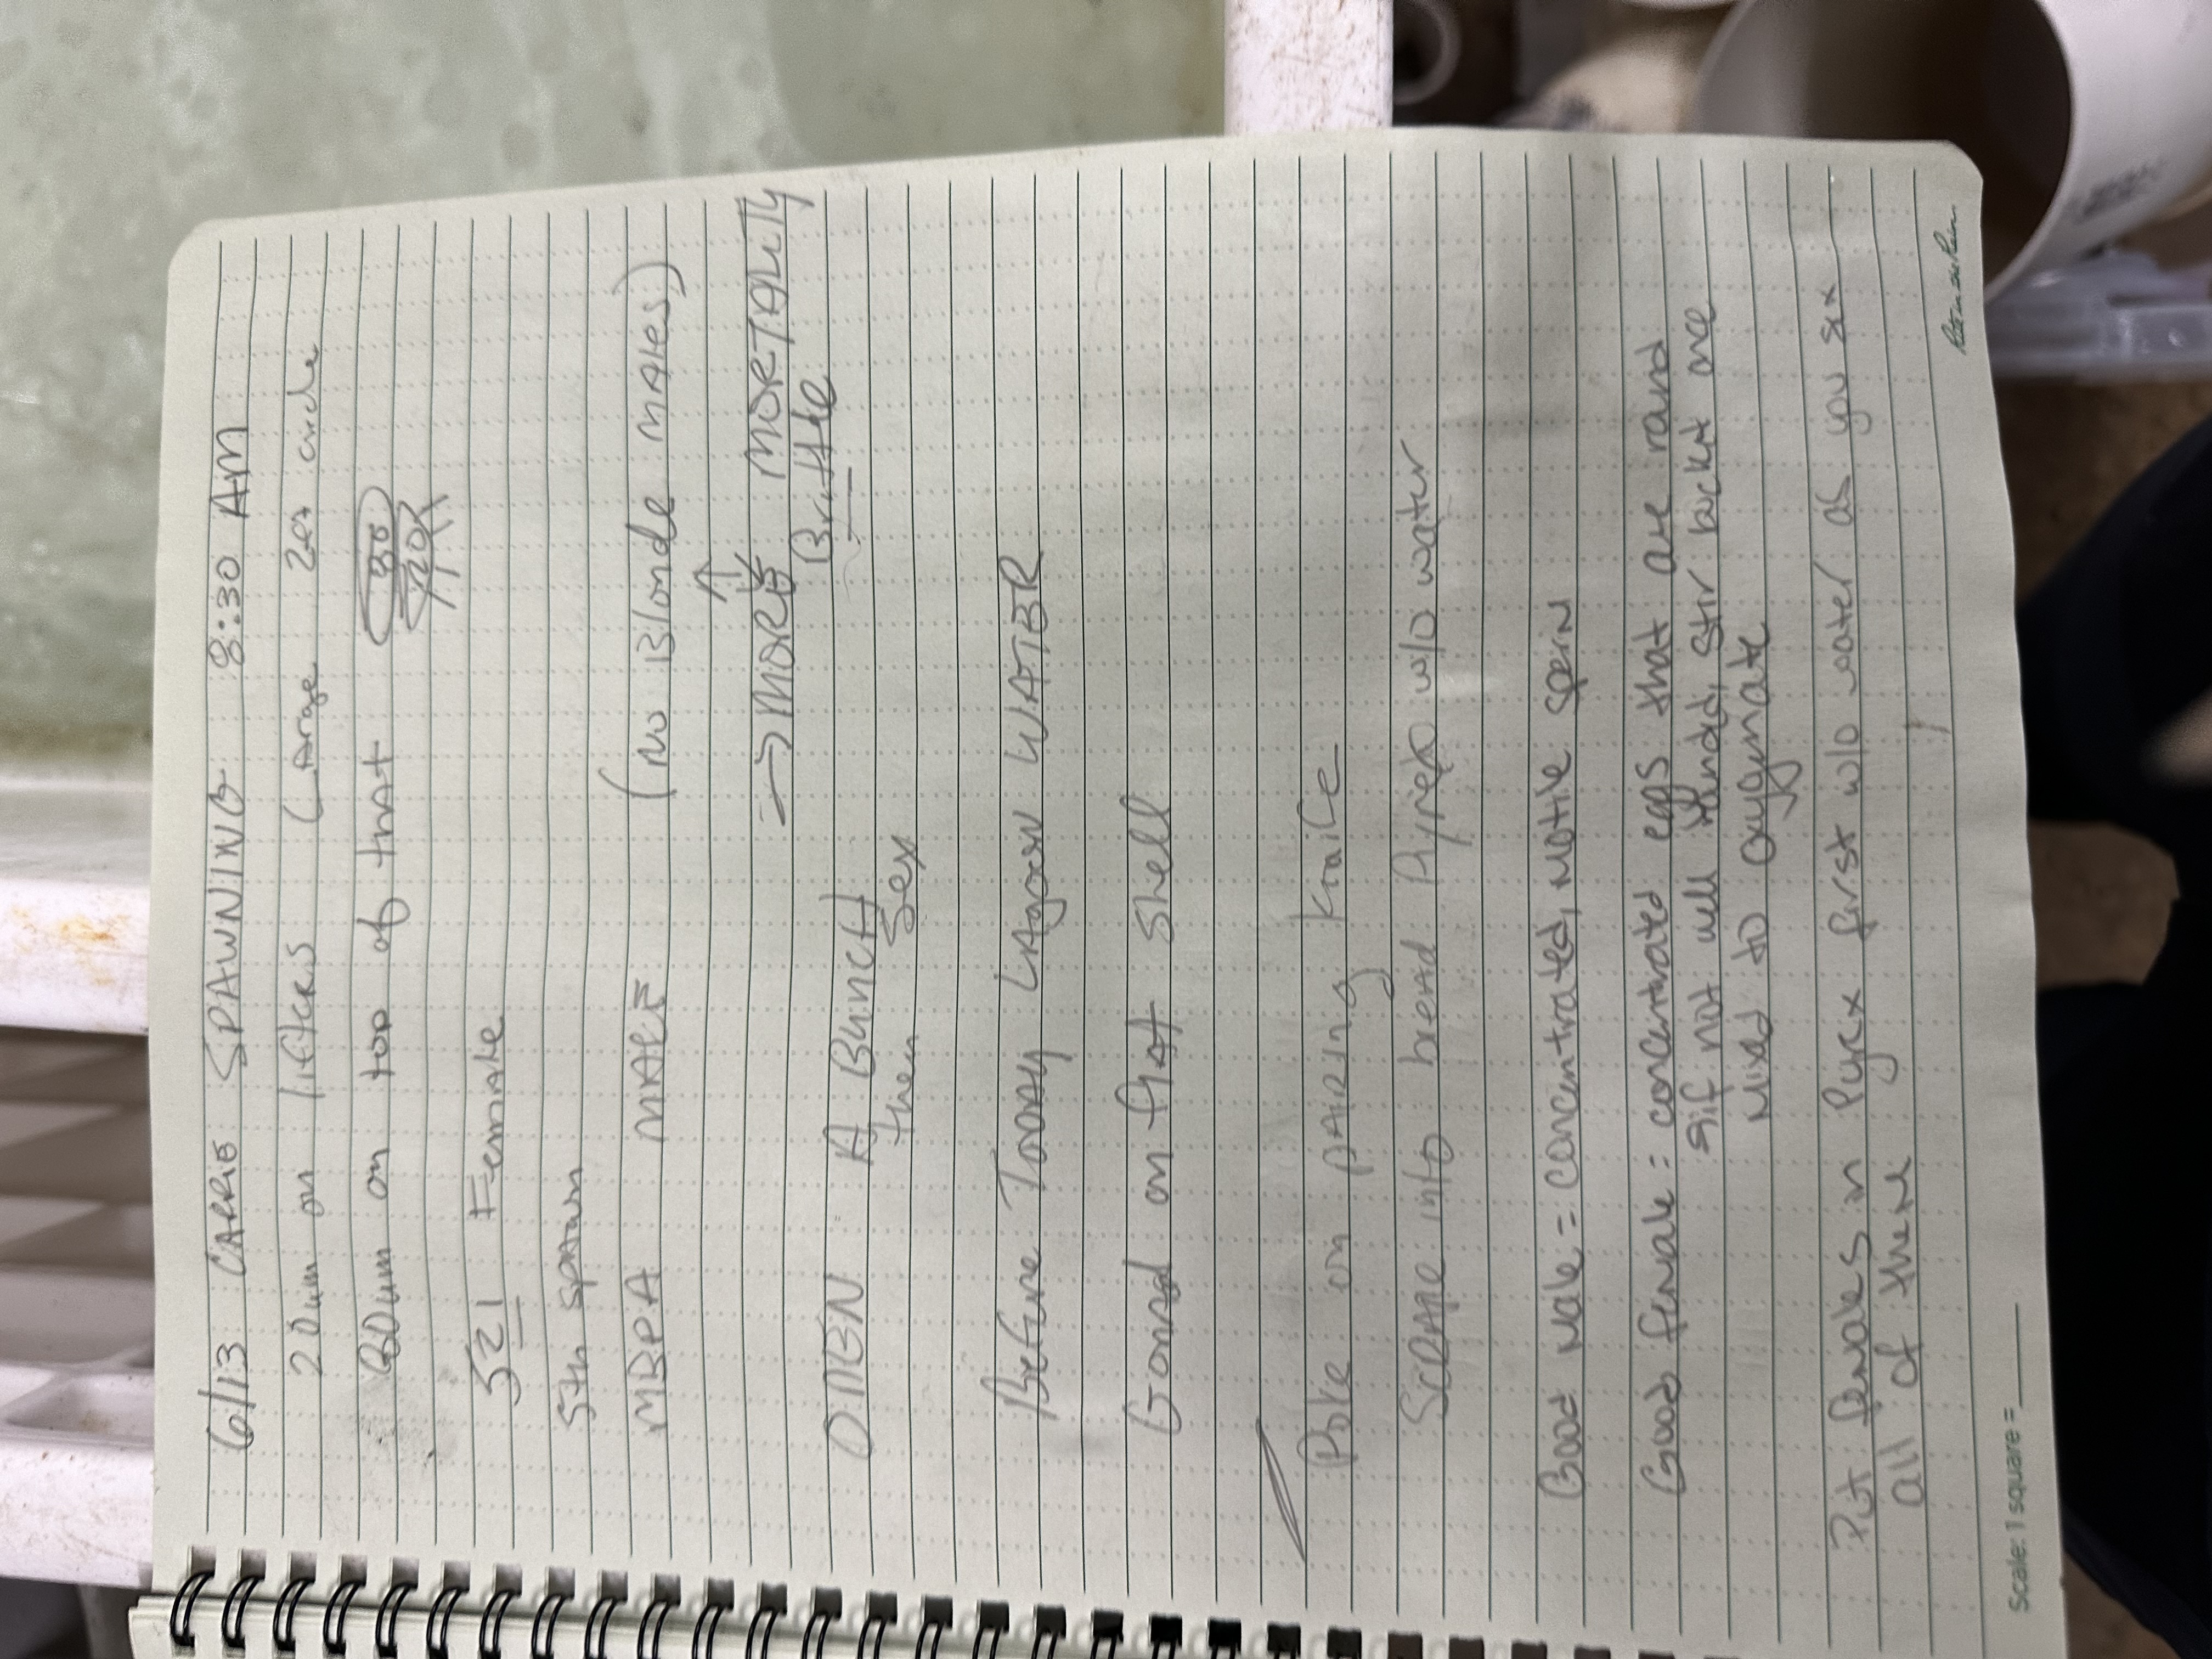 6/13 CARRIE SPAWNING 8:30 AM
20um on lifters Large 2ft circle
80um on top of that 80
20
521 Female
5th spawn
MBPA MALE (No Blonde males)
→ MORE MORTALITY
Brittle
OPEN A BuncH
then Sex
Before Today Lagoon WATER
Gonad on flat shell
Poke on pairing knaife
Scrape into bread Pyrex w/o water
Good male = concentrated, motile sperm
Good female = concentrated eggs that are round
if not well rounded, stir bucket once
mixed to oxygenate
Put females in Pyrex first w/o water as you sex
all of them
Rite in the Rain
Scale: 1 square =